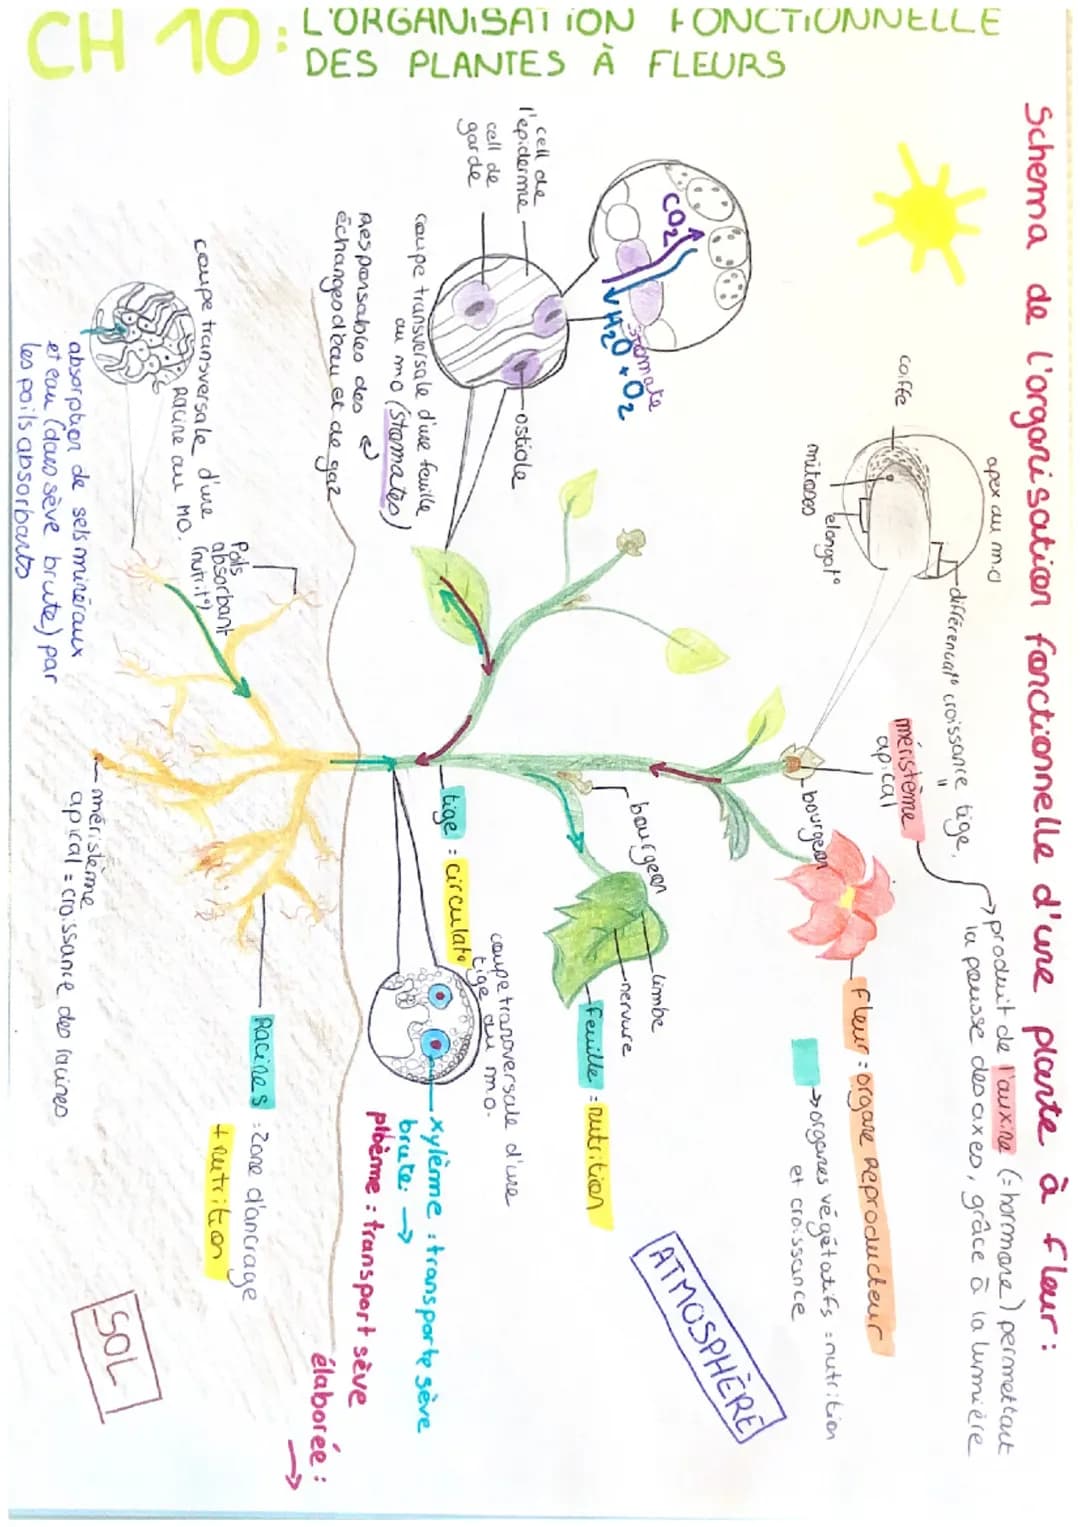 CH 10 : L'ORGANISATION FONCTIONNELLE
DES PLANTES À FLEURS
Schema de l'organisation fonctionnelle d'une plante à fleur :
apex au m.o
coiffe
mitoses
elongat°
différenciat° croissance tige.
méristème
apical
→ produit de l'auxine (=hormone) permettant
la pousse des axes, grâce à la lumière
bourgeon
Fleur : organe Reproducteur
→ organes végétatifs = nutrition
et croissance
ATMOSPHÈRE
CO2
H2O + O2
stomate
cell de
l'epiderme
cell de
garde
ostiole
coupe transversale d'une feuille
au mo (stomates)
Responsables des
échanges d'eau et de gaz
bourgeon
limbe
nervure
feuille = nutrition
tige : circulat°
coupe transversale d'une
tige au m.o.
xylème : transporte sève
brute : →
phloème : transport sève
élaborée :
→
coupe transversale d'une
Racine au MO.
Poils
absorbant
(nutrit°)
absorption de sels minéraux
et eau (dans sève brute) par
les poils absorbants
méristème
apical = croissance des racines
Racines : zone d'ancrage
+ nutrition
SOL